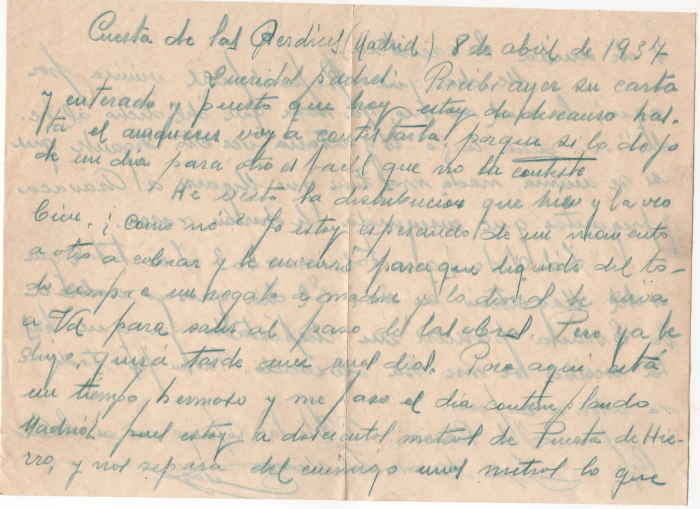 Cuesta de las Perdices (Madrid) 8 de abril de 1937
Queridol padrel: Recibi ayer su carta
y enterado, y puesto que hoy estoy de descanso has-
ta el amanecer voy a contestarla, porque si lo dejo
de un dia para otro es facil que no la conteste
He visto la distribucion que hizo y la veo
bien. ¡Como no! Yo estoy esperando de un momento
a otro a cobrar y le enviaré para que liquide del to-
do compre un regalo a madre y lo demas le sirva
a Vd para salir al paso de las obras. Pero ya le
digo, quizá tarde aun unos dias. Por aqui está
un tiempo hermoso y me paso el dia contemplando
Madrid, pues estoy a doscientos metros de Puerta de Hie-
rro, y nos separa del enemigo unos metros lo que